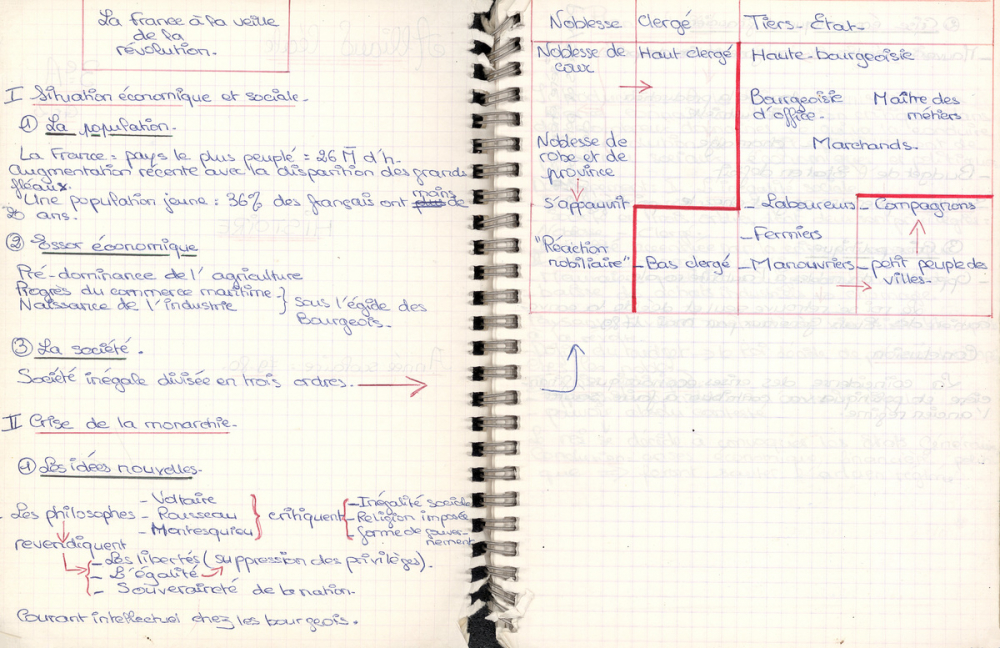 La France à la veille
de la
révolution.
I Situation économique et sociale.
① La population.
La France = pays le plus peuplé = 26 M d'h.
Augmentation récente avec la disparition des grands
fléaux.
Une population jeune : 36% des français ont moins de
20 ans.
② Essor économique
Pré-dominance de l'agriculture
Progrès du commerce maritime
Naissance de l'industrie } sous l'égide des
Bourgeois.
③ La société.
Société inégale divisée en trois ordres. →
II Crise de la monarchie.
① Les idées nouvelles.
- Les philosophes - Voltaire
- Rousseau
- Montesquieu } critiquent { - Inégalité sociale
- Religion imposée
forme de gouver-
nement
revendiquent
- Les libertés (suppression des privilèges).
- L'égalité
- Souveraineté de la nation.
Courant intellectuel chez les bourgeois.
Noblesse Clergé Tiers-État.
Noblesse de
cour
Haut clergé
Haute-bourgeoisie
Bourgeoisie
d'office.
Maître des
métiers
Marchands.
Noblesse de
robe et de
province
s'appauvrit
- Laboureurs - Compagnons
- Fermiers
"Réaction
nobiliaire"
- Bas clergé - Manouvriers - petit peuple des
villes.